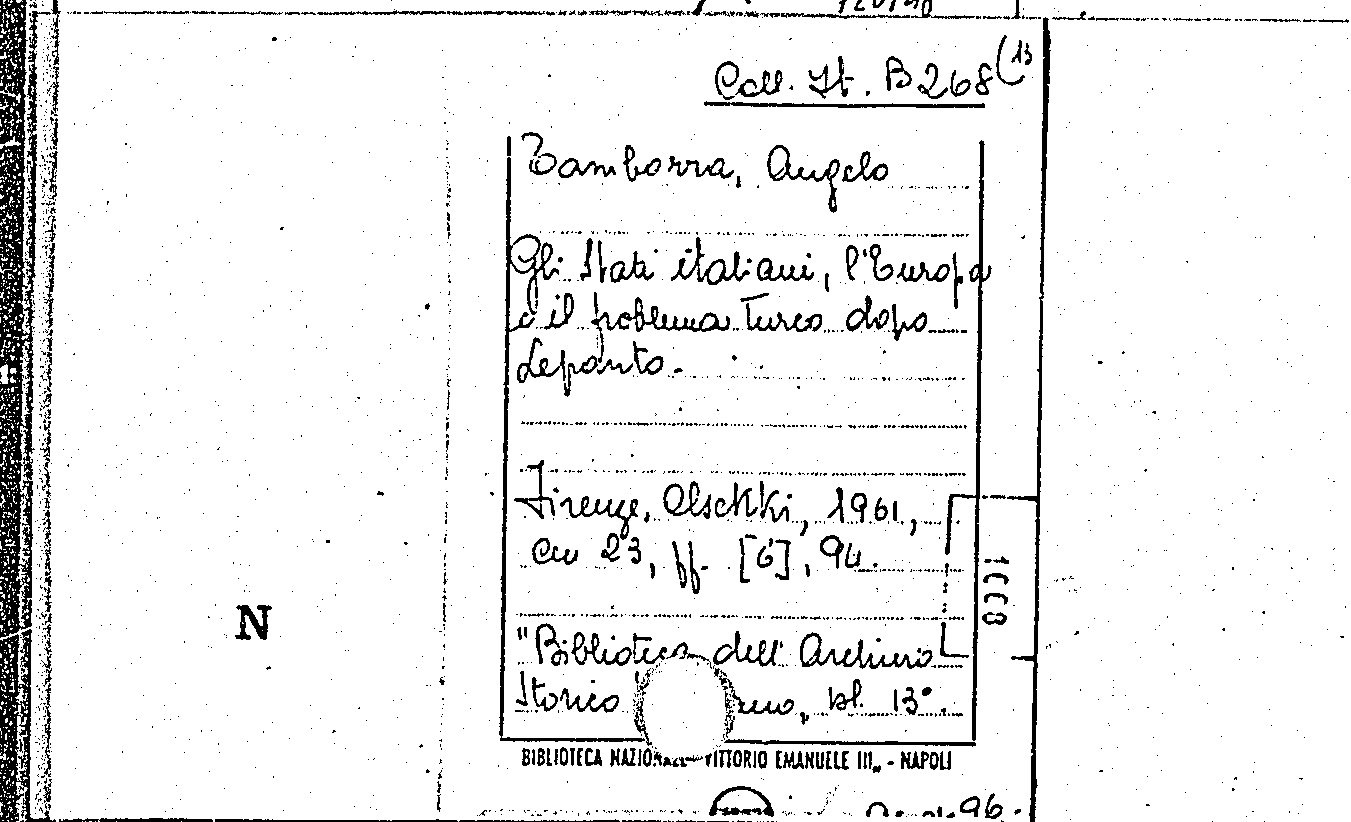 Coll. It. B 268 (13
Tamborra, Angelo
Gli Stati italiani, l'Europa
e il problema Turco dopo
Lepanto.
Firenze, Olschki, 1961,
cm 23, ff. [6], 94.
1008
N
"Biblioteca dell'Archivio
Storico
, vol. 13°.
BIBLIOTECA VITTORIO EMANUELE III„ - NAPOLI
96.